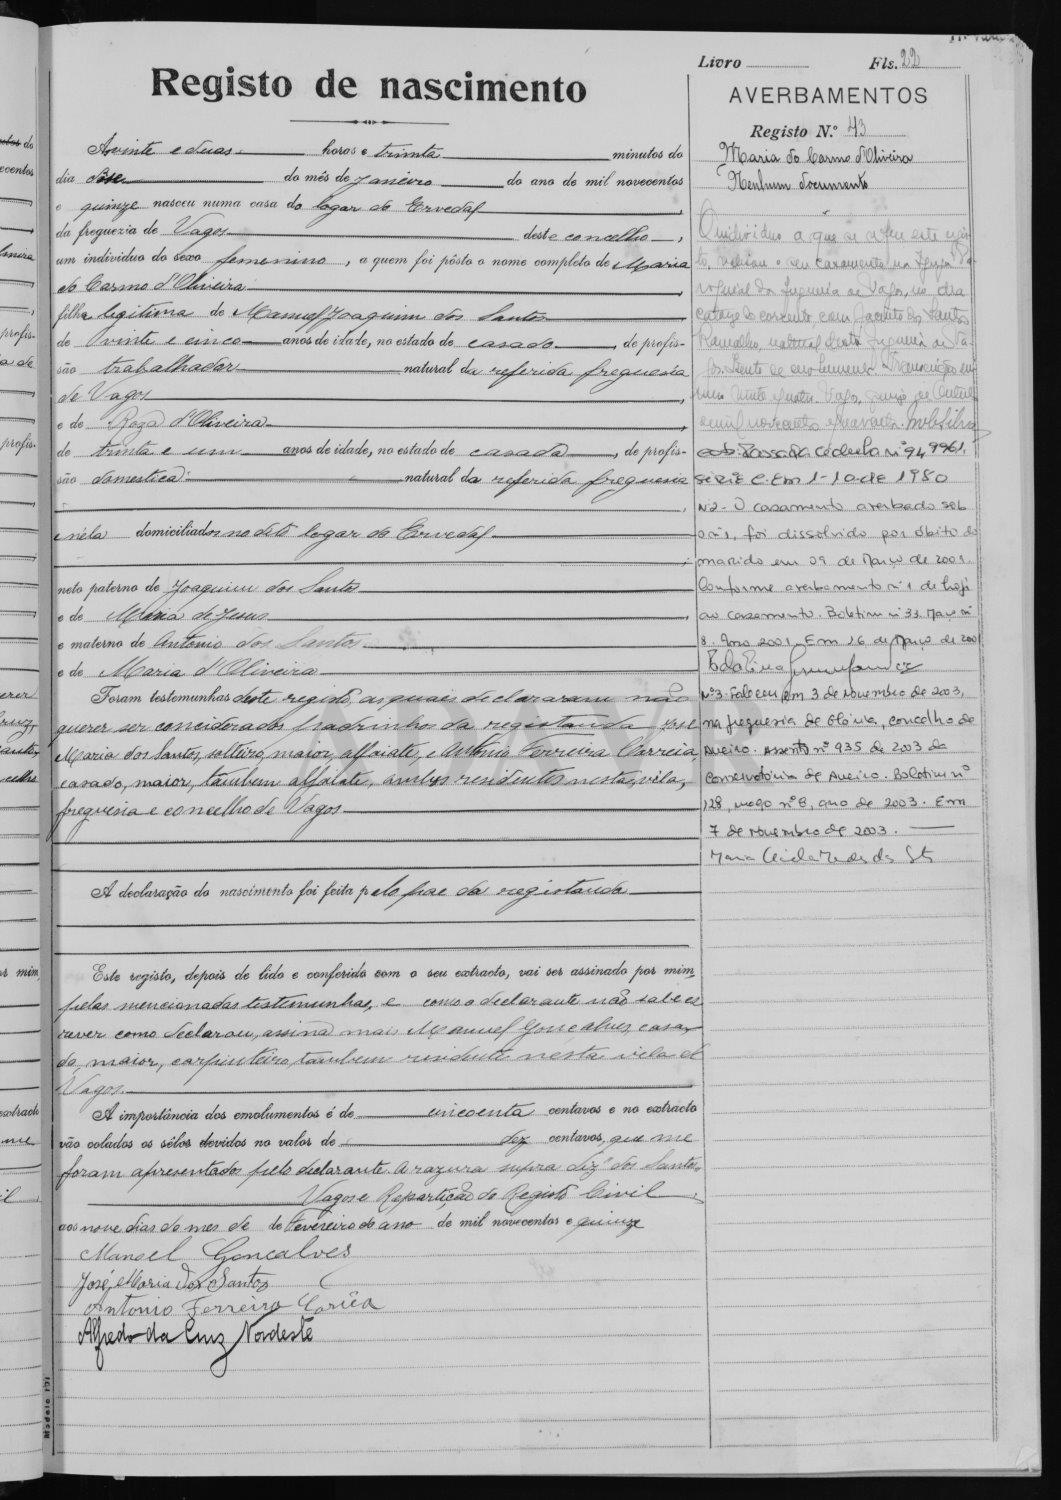 Livro Fls. 22
Registo de nascimento
AVERBAMENTOS
Registo N.º 43
Maria do Carmo d'Oliveira
Nenhum documento
A vinte e duas horas e trinta minutos do
dia do mês de Janeiro do ano de mil novecentos
e quinze nasceu numa casa do logar do Ervedal,
da freguezia de Vagos deste concelho,
um individuo do sexo femenino, a quem foi pôsto o nome completo de Maria
do Carmo d'Oliveira
filha legitima de Manuel Joaquim dos Santos
de vinte e cinco anos de idade, no estado de casado, de profis-
são trabalhador natural da referida freguesia
de Vagos,
e de Roza d'Oliveira,
de trinta e um anos de idade, no estado de casada, de profis-
são domestica natural da referida freguesia
e nela domiciliados no dito logar do Ervedal
neto paterno de Joaquim dos Santos
e de Maria de Jesus,
e materno de Antonio dos Santos
e de Maria d'Oliveira
Foram testemunhas deste registo, as quais declararam não
querer ser conciderados padrinhos da registanda José
Maria dos Santos, solteiro, maior, alfaiate, e António Ferreira Correia,
casado, maior, tambem alfaiate, ambos residentes nesta vila,
freguesia e concelho de Vagos
A declaração do nascimento foi feita pelo pae da registanda
Este registo, depois de lido e conferido com o seu extracto, vai ser assinado por mim,
pelas mencionadas testemunhas, e como o declarante não sabe es
crever como declarou, assina mais Manuel Gonçalves, casa
do, maior, carpinteiro, tambem residente nesta vila de
Vagos.
A importância dos emolumentos é de cincoenta centavos e no extracto
vão colados os sêlos devidos no valor de dez centavos, que me
foram apresentados pelo declarante. A razura supra diz "dos Santos".
Vagos e Repartição do Registo Civil,
aos nove dias do mes de de Fevereiro do ano de mil novecentos e quinze
Manoel Gonçalves
José Maria dos Santos
Antonio Ferreira Corrêa
Alfredo da Cruz Nordeste
O individuo a que se refere este regis-
to, celebrou o seu casamento na Igreja Pa-
roquial da freguesia de Vagos, no dia
catorze do corrente com Jacinto dos Santos
Ramalho, natural desta freguesia de Va-
gos.
mil novecentos e quarenta.
Passada cedula nº 949961,
série C. Em 1-10-de 1980
Nº2- O casamento averbado sob
o nº1, foi dissolvido por óbito do
marido em 09 de Março de 2001.
Conforme averbamento nº 1 de hoje
ao casamento. Boletim nº 33. Maço nº
8. Ano 2001. Em 16 de Março de 2001
Nº3- Faleceu em 3 de Novembro de 2003,
na freguesia de Glória, concelho de
Aveiro. Assento nº 935 de 2003 da
Conservatória de Aveiro. Boletim nº
128, maço nº 8, ano de 2003. Em
7 de Novembro de 2003.
Modelo 171